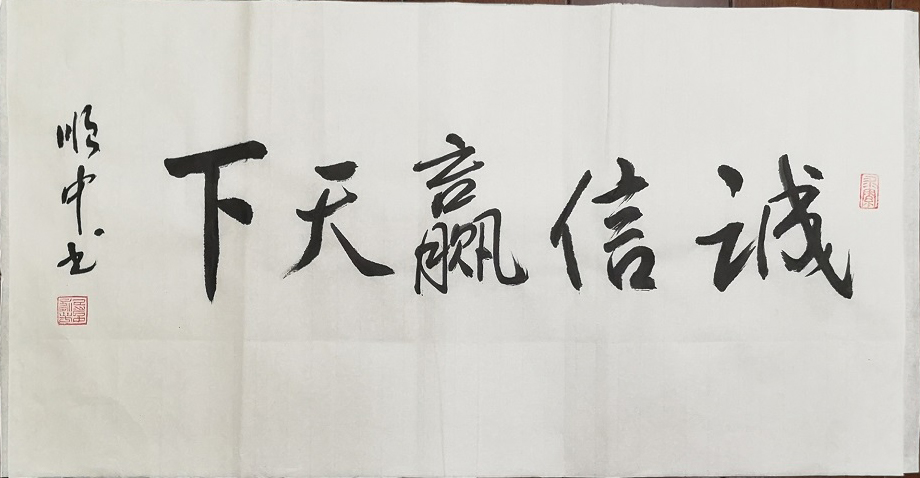 诚信赢天下
顺中书